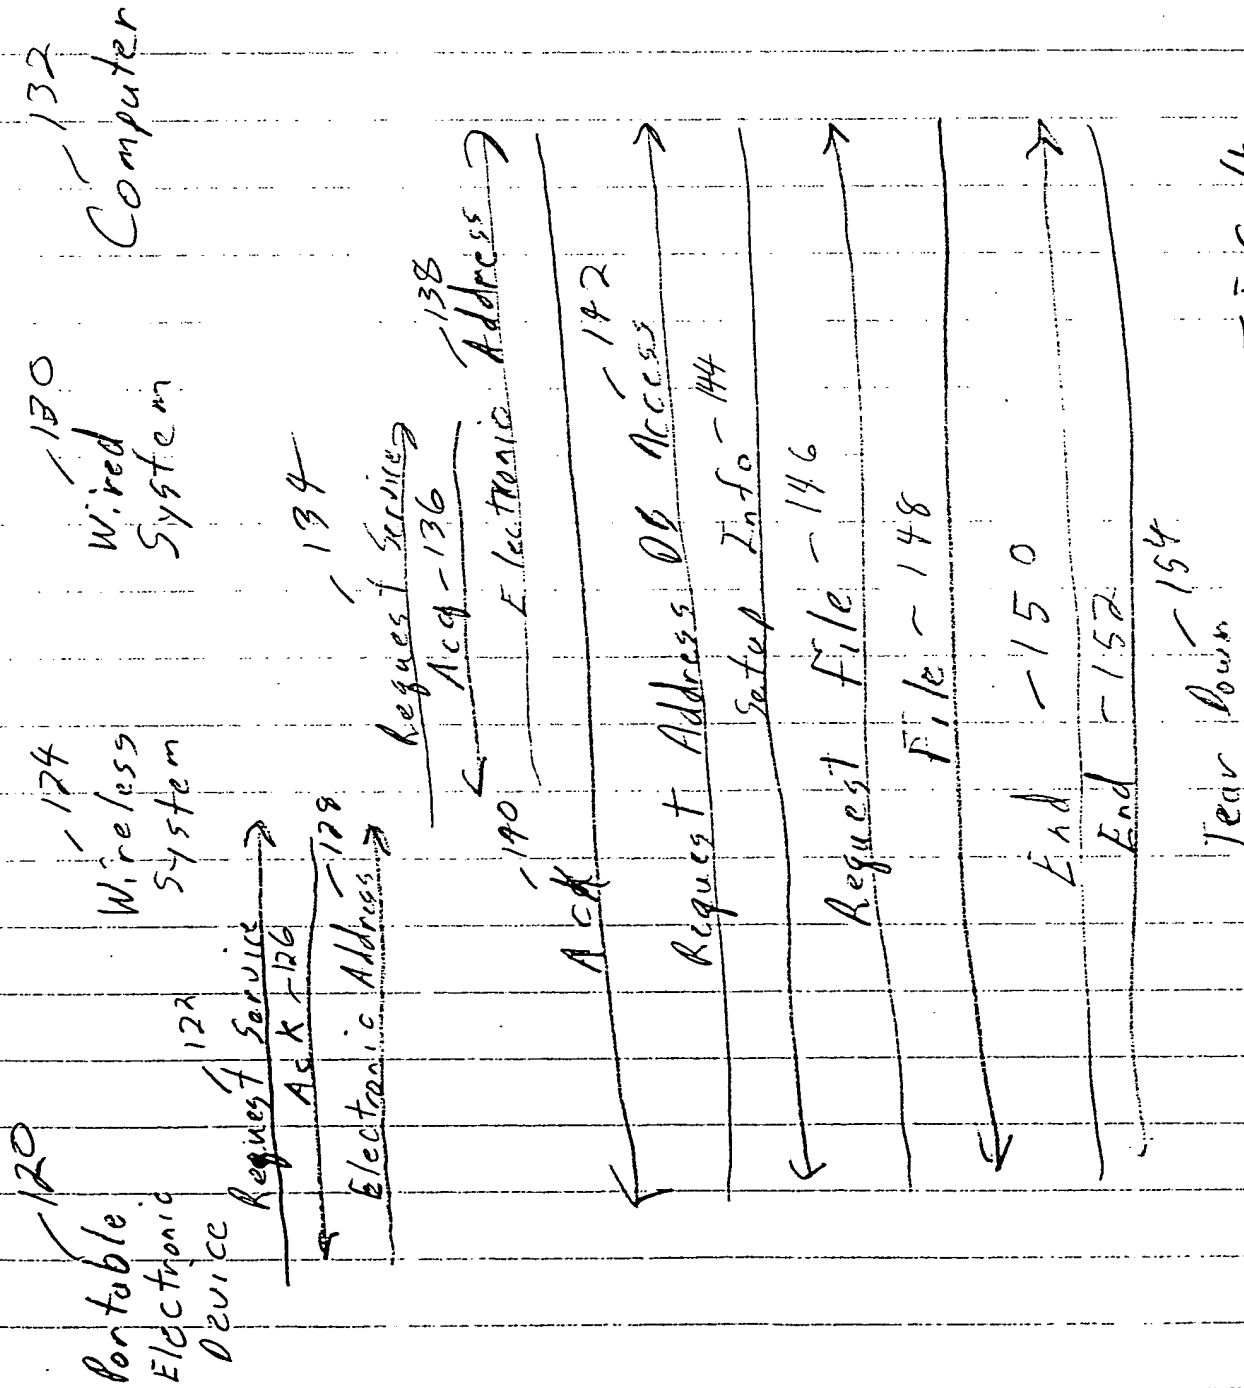 120
Portable
Electronic
Device
124
Wireless
System
130
Wired
System
132
Computer
122
Request Service
Ack - 126
128
Electronic Address
134
Request Service
Acq - 136
138
Electronic Address
140
Ack
142
Request Address DB Access
Setup Info - 144
Request File - 146
File - 148
End - 150
End - 152
Tear Down - 154